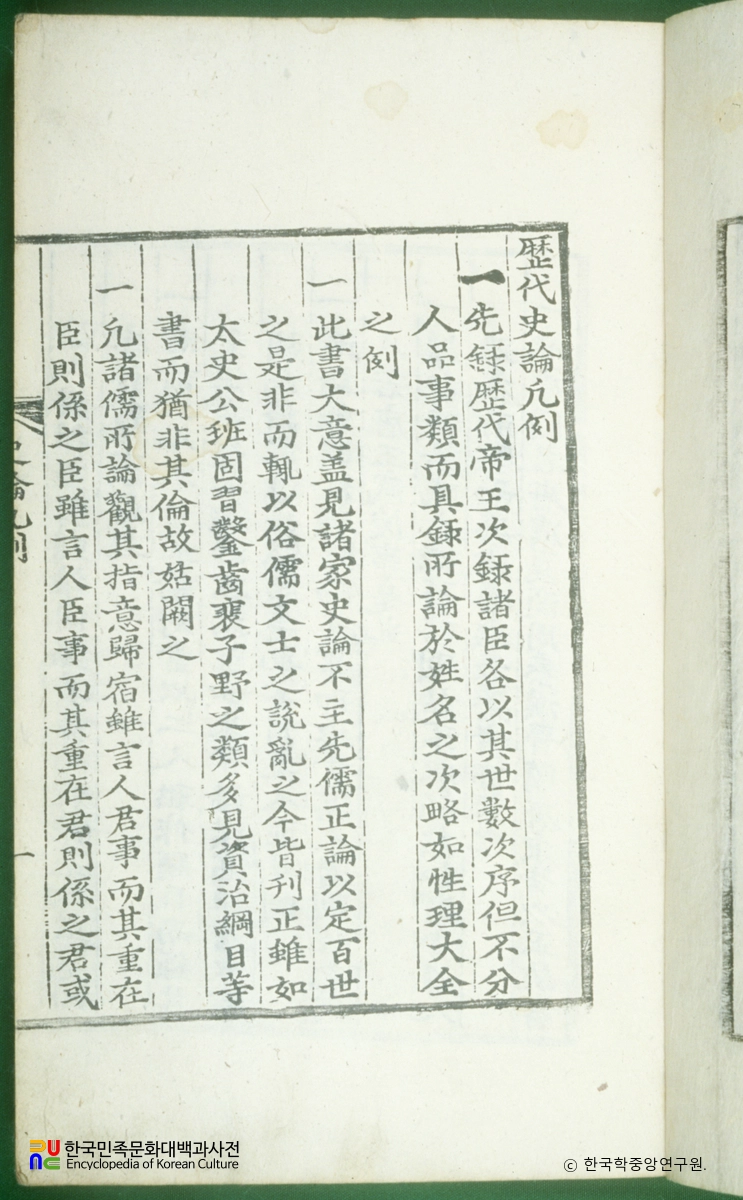 歷代史論凡例
一先錄歷代帝王次錄諸臣各以其世數次序但不分
人品事類而具錄所論於姓名之次略如性理大全
之例
一此書大意盖見諸家史論不主先儒正論以定百世
之是非而輒以俗儒文士之說亂之今皆刊正雖如
太史公班固習鑿齒裵子野之類多見資治綱目等
書而猶非其倫故姑闕之
一凡諸儒所論觀其指意歸宿雖言人君事而其重在
臣則係之臣雖言人臣事而其重在君則係之君或
史論凡例
一
한국민족문화대백과사전
Encyclopedia of Korean Culture
ⓒ 한국학중앙연구원.